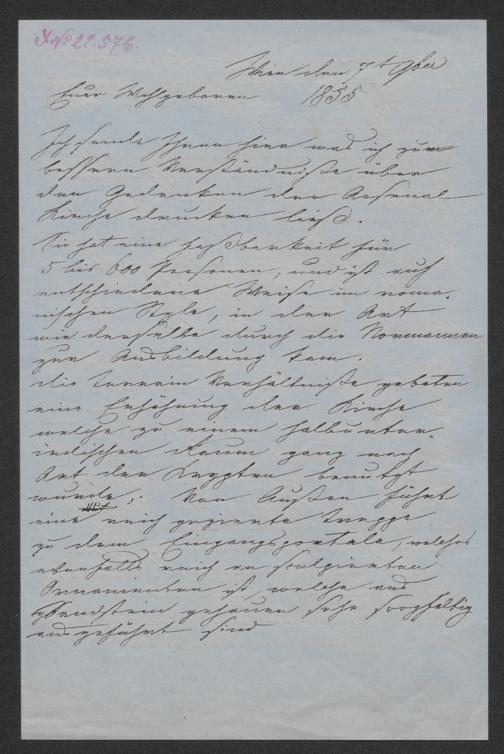 J.N. 22.576.
Wien den 7t 9ber
Euer Wohlgeboren 1855
Ich sende Ihnen hier was ich zum
bessern Verständniße über
den Gedanken der Arsenal-
Kirche drucken ließ.
Sie hat eine Faßbarkeit für
5 bis 600 Personen, und ist auf
entschiedene Weise im roma-
nischen Style, in der Art
wie derselbe durch die Normannen
zur Ausbildung kam.
Die Terrain Verhältniße geboten
eine Erhöhung der Kirche
welche zu einem halbunter-
irdischen Raum ganz nach
Art der Krypten benutzt
wurde; Von Außen führt
eine reich gezierte Treppe
zu dem Eingangsportale, welches
ebenfalls reich an sculpirten
Ornamenten ist, welche aus
Sandstein gehauen sehr sorgfältig
ausgeführt sind